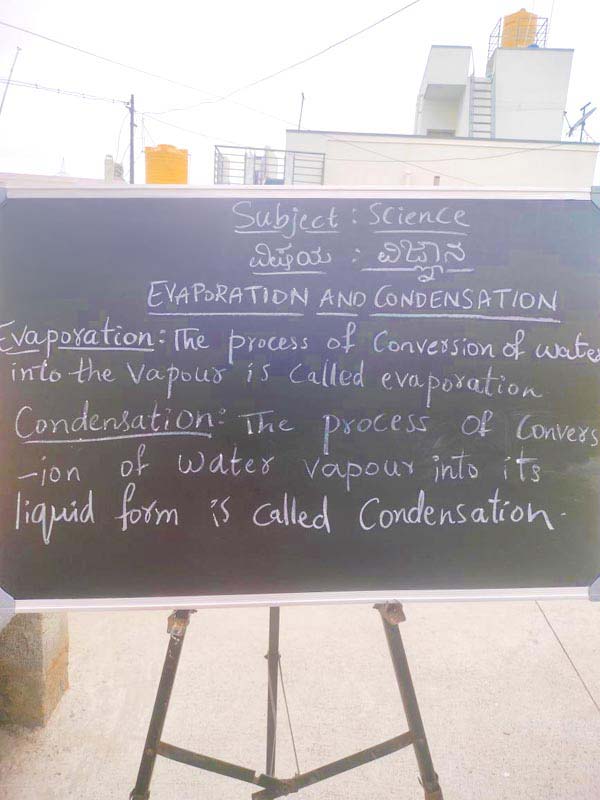 Subject: Science
ವಿಷಯ : ವಿಜ್ಞಾನ
EVAPORATION AND CONDENSATION
Evaporation: The process of Conversion of water
into the Vapour is called evaporation
Condensation: The process of Convers
-ion of water vapour into its
liquid form is called Condensation.